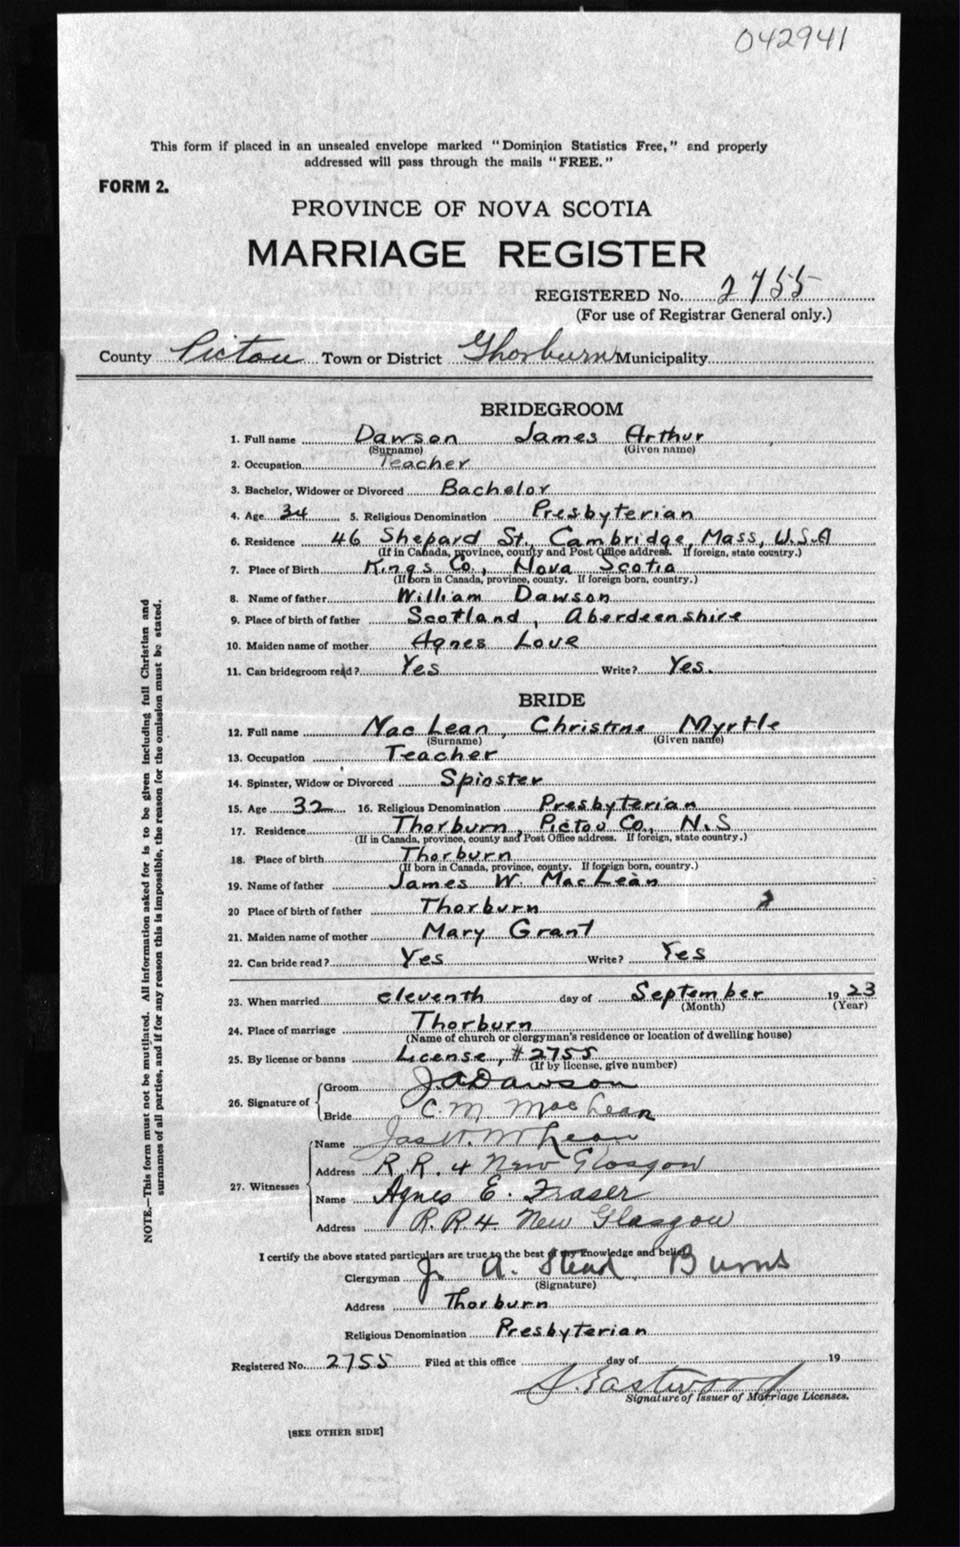 042941
This form if placed in an unsealed envelope marked "Dominion Statistics Free," and properly
addressed will pass through the mails "FREE."
FORM 2.
PROVINCE OF NOVA SCOTIA
MARRIAGE REGISTER
REGISTERED No. 2755
(For use of Registrar General only.)
County Pictou Town or District Thorburn Municipality
BRIDEGROOM
1. Full name Dawson James Arthur
(Surname) (Given name)
2. Occupation Teacher
3. Bachelor, Widower or Divorced Bachelor
4. Age 34 5. Religious Denomination Presbyterian
6. Residence 46 Shepard St., Cambridge, Mass, U.S.A
(If in Canada, province, county and Post Office address. If foreign, state country.)
7. Place of Birth Kings Co., Nova Scotia
(If born in Canada, province, county. If foreign born, country.)
8. Name of father William Dawson
9. Place of birth of father Scotland, Aberdeenshire
10. Maiden name of mother Agnes Love
11. Can bridegroom read? Yes Write? Yes.
BRIDE
12. Full name MacLean, Christine Myrtle
(Surname) (Given name)
13. Occupation Teacher
14. Spinster, Widow or Divorced Spinster
15. Age 32 16. Religious Denomination Presbyterian
17. Residence Thorburn, Pictou Co., N.S
(If in Canada, province, county and Post Office address. If foreign, state country.)
18. Place of birth Thorburn
(If born in Canada, province, county. If foreign born, country.)
19. Name of father James W. MacLean
20 Place of birth of father Thorburn
21. Maiden name of mother Mary Grant
22. Can bride read? Yes Write? Yes
23. When married eleventh day of September 1923
(Month) (Year)
24. Place of marriage Thorburn
(Name of church or clergyman's residence or location of dwelling house)
25. By license or banns License, #2755
(If by license, give number)
26. Signature of
Groom J.A Dawson
Bride C. M MacLean
27. Witnesses
Name Jas W. McLean
Address R. R. 4 New Glasgow
Name Agnes E. Fraser
Address R. R 4. New Glasgow
I certify the above stated particulars are true to the best of my knowledge and belief.
Clergyman J. A. Stead Burns
(Signature)
Address Thorburn
Religious Denomination Presbyterian
Registered No. 2755 Filed at this office day of 19
Eastwood
Signature of Issuer of Marriage Licenses.
[SEE OTHER SIDE]
NOTE.—This form must not be mutilated. All information asked for is to be given including full Christian and
surnames of all parties, and if for any reason this is impossible, the reason for the omission must be stated.